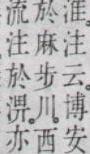 淮注云。博安
於麻步川。西
流注於淠。亦